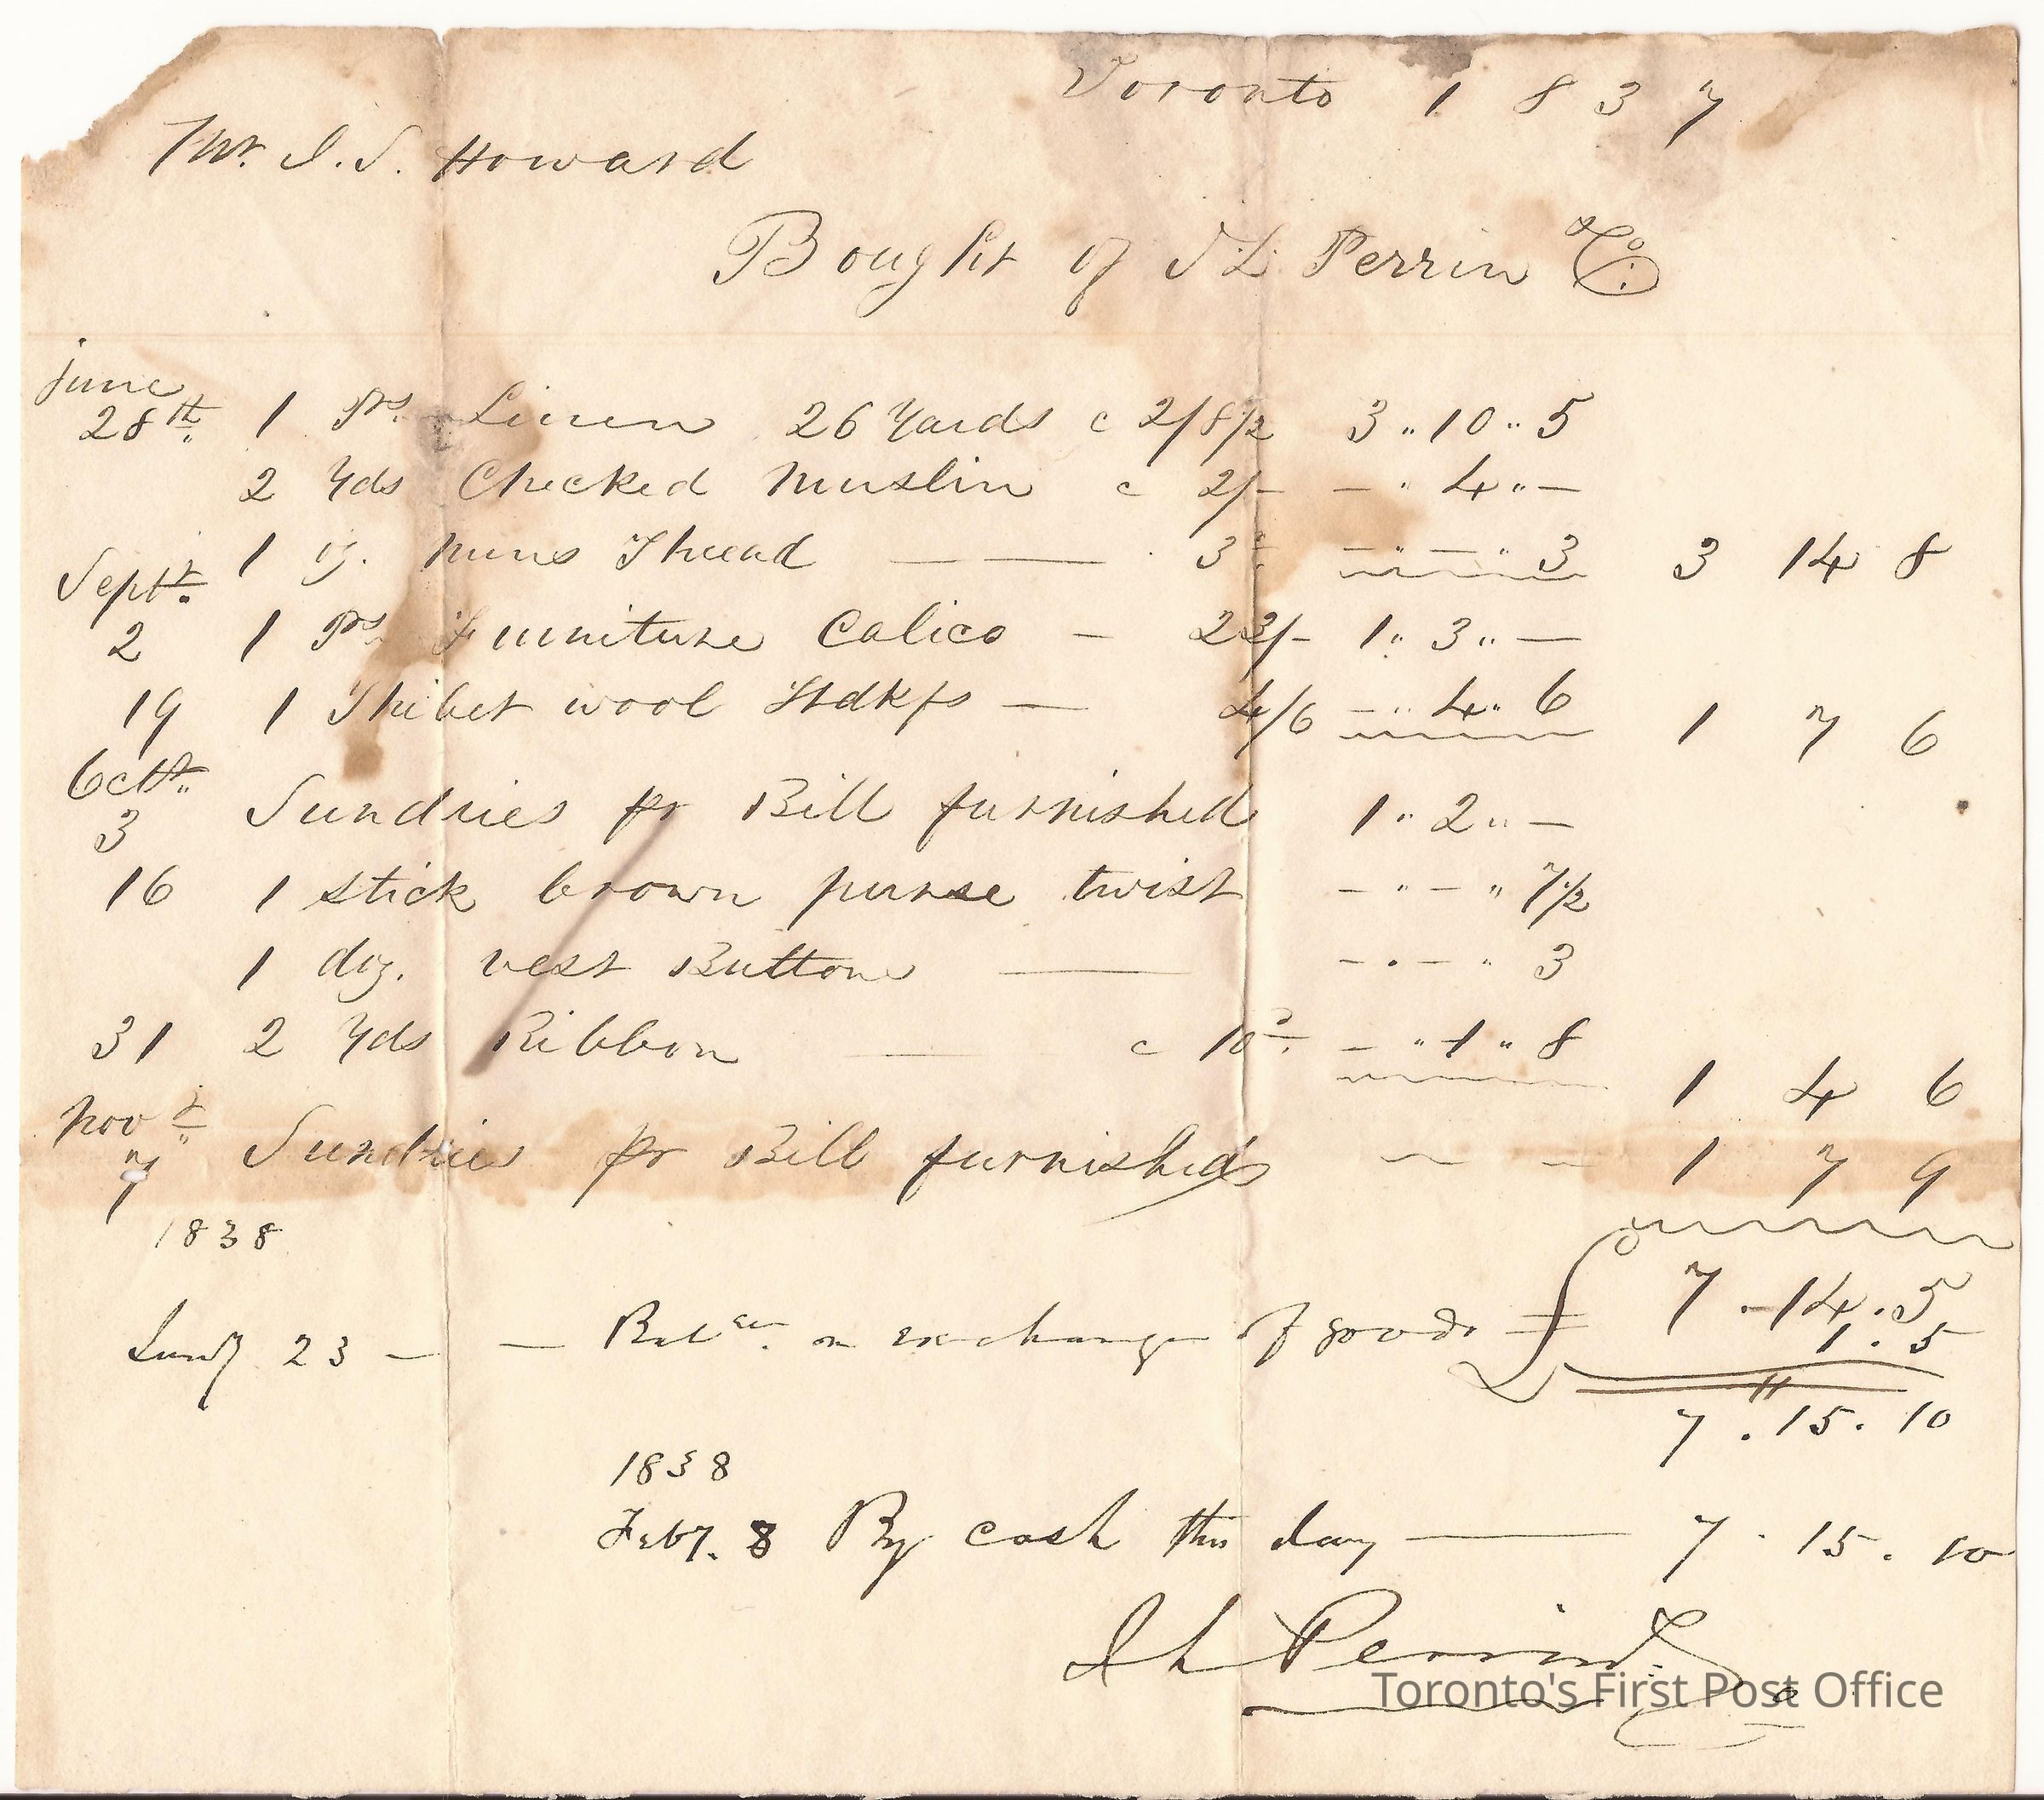 Toronto 1837
Mr. J. S. Howard
Bought of J L Perrin & Co.
June
28th 1 Ps Linen 26 Yards c 2/8½ 3 " 10 " 5
2 Yds Checked Muslin c 2/- - " 4 " -
1 oz. Nuns Thread — 3d - " - " 3 3 14 8
Septr.
2 1 Ps Furniture Calico - 23/- 1 " 3 " -
19 1 Thibet wool Hdkfs — 4/6 - " 4 " 6 1 7 6
Octr.
3 Sundries pr Bill furnished 1 " 2 " -
16 1 stick brown purse twist - " - " 7½
1 doz. vest Buttons — - " - " 3
31 2 Yds Ribbon — c 10d - " 1 " 8
1 4 6
Novr
7 Sundries pr Bill furnished 1 7 9
1838
£ 7 . 14 . 5
Jany 23 — — Balce. on exchange of goods = 1 . 5
7 . 15 . 10
1838
Feby. 8 By cash this day — 7 . 15 . 10
J L Perrin & Co
Toronto's First Post Office